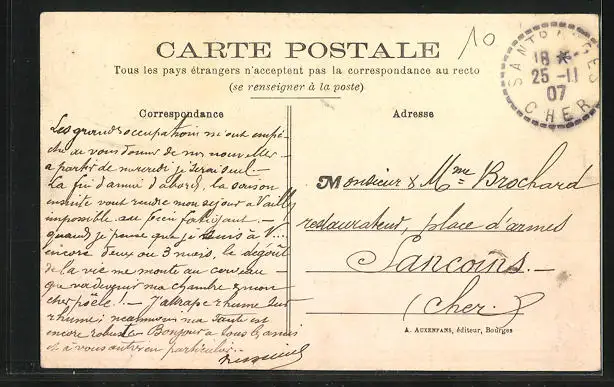 CARTE POSTALE
10
Tous les pays étrangers n'acceptent pas la correspondance au recto
(se renseigner à la poste)
SANTRANGES
18 *
25 -11
07
CHER
Correspondance
Les grandes occupations m'ont empê-
ché de vous donner de mes nouvelles -
à partir de mercredi je serai seul -
La fin d'année d'abord, la saison
ensuite vont rendre mon séjour à Vailly
impossible, au fatigant. -
quand je pense que je suis à V...
encore deux ou 3 mois, le dégoût
de la vie me monte au cerveau -
que va devenir ma chambre & mon
cher poêle! - J'attrape rhume sur
rhume; néanmoins ma santé est
encore robuste - Bonjour à tous les amis
et à vous autres en particulier..
Adresse
Monsieur & Mme Brochard
restaurateur, place d'armes
Sancoins. -
(Cher.)
A. AUXENFANS, éditeur, Bourges